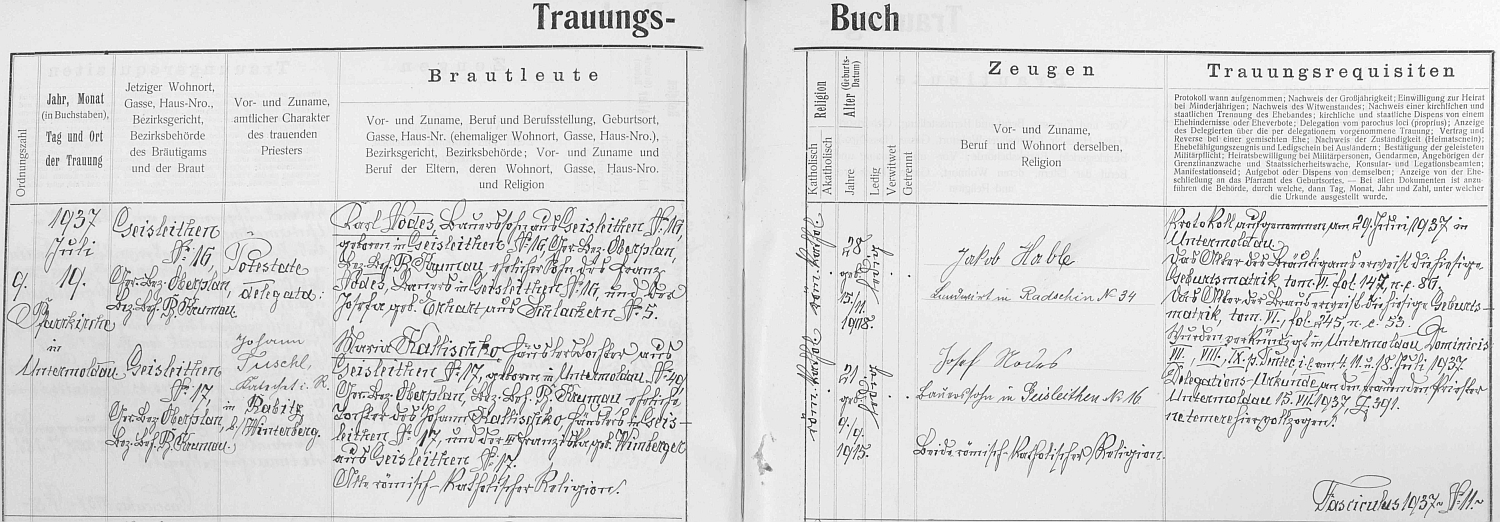 Trauungs-
Buch
Ordnungszahl
Jahr, Monat
(in Buchstaben),
Tag und Ort
der Trauung
Jetziger Wohnort,
Gasse, Haus-Nro.,
Bezirksgericht,
Bezirksbehörde
des Bräutigams
und der Braut
Vor- und Zuname,
amtlicher Charakter
des trauenden
Priesters
Brautleute
Vor- und Zuname, Beruf und Berufsstellung, Geburtsort,
Gasse, Haus-Nr. (ehemaliger Wohnort, Gasse, Haus-Nro.),
Bezirksgericht, Bezirksbehörde; Vor- und Zuname und
Beruf der Eltern, deren Wohnort, Gasse, Haus-Nro.
und Religion
Religion
Katholisch
Akatholisch
Alter (Geburts-Datum)
Jahre
Ledig
Verwitwet
Getrennt
Zeugen
Vor- und Zuname,
Beruf und Wohnort derselben,
Religion
Trauungsrequisiten
Protokoll wann aufgenommen; Nachweis der Großjährigkeit; Einwilligung zur Heirat
bei Minderjährigen; Nachweis des Witwenstandes; Nachweis einer kirchlichen und
staatlichen Trennung des Ehebandes; kirchliche und staatliche Dispens von einem
Ehehindernisse oder Eheverbote; Delegation vom parochus loci (proprius); Anzeige
des Delegierten über die per delegationem vorgenommene Trauung; Vertrag und
Reverse bei einer gemischten Ehe; Nachweis der Zuständigkeit (Heimatschein);
Ehebefähigungszeugnis und Ledigschein bei Ausländern; Bestätigung der geleisteten
Militärpflicht; Heiratsbewilligung bei Militärpersonen, Gendarmen, Angehörigen der
Grenzfinanzwache und Staatssicherheitswache, Konsular- und Legationsbeamten;
Manifestationseid; Aufgebot oder Dispens von demselben; Anzeige von der Ehe-
schließung an das Pfarramt des Geburtsortes. — Bei allen Dokumenten ist anzu-
führen die Behörde, durch welche, dann Tag, Monat, Jahr und Zahl, unter welcher
die Urkunde ausgestellt wurde.
9.
1937
Juli
19.
Pfarrkirche
in
Untermoldau
Geisleithen
№ 16
Ger. Bez. Oberplan,
Bez. Beh. B. Krumau.
Geisleithen
№ 17,
Ger. Bez. Oberplan,
Bez. Beh. B. Krumau.
Potestate
delegata:
Johann
Tuschl,
Katechet i. R.
in Rabitz
b/Winterberg.
Karl Nodes, Bauerssohn aus Geisleithen № 16,
geboren in Geisleithen № 16, Ger. Bez. Oberplan,
Bez. Beh. B. Krumau, ehelicher Sohn des Franz
Nodes, Bauers in Geisleithen № 16, und der
Josefa geb. Ekhart aus Schlackern № 5.
Maria Kattischko, Häuslerstochter aus
Geisleithen № 17, geboren in Untermoldau № 49,
Ger. Bez. Oberplan, Bez. Beh. B. Krumau, eheliche
Tochter des Johann Kattischko, Häuslers in Geis-
leithen № 17, und der Franziska geb. Wimberger
aus Geisleithen № 17.
Alle römisch-katholischer Religion.
röm. kathol.
28
geb.
15./
11.
1908.
ledig
röm. kathol.
21
geb.
9./9.
1915.
ledig
Jakob Hable
Landwirt in Radschin № 34
Josef Nodes
Bauerssohn in Geisleithen № 16
Beide römisch-katholischer Religion.
Protokoll aufgenommen am 29. Juni 1937 in
Untermoldau.
Das Alter des Bräutigams erweist die hiesige
Geburtsmatrik, tom. VI. fol. 147, n. e. 86.
Das Alter der Braut erweist die hiesige Geburts-
matrik, tom. VI., fol. 245, n. e. 53.
Wurden verkündigt in Untermoldau Dominicis
VII., VIII., IX. p. Pent. i. e. am 4. 11. u. 18. Juli 1937.
Delegations-Urkunde an den trauenden Priester
Untermoldau 15. VII. 1937 Z. 391.
Fasciculus 1937 № 11.